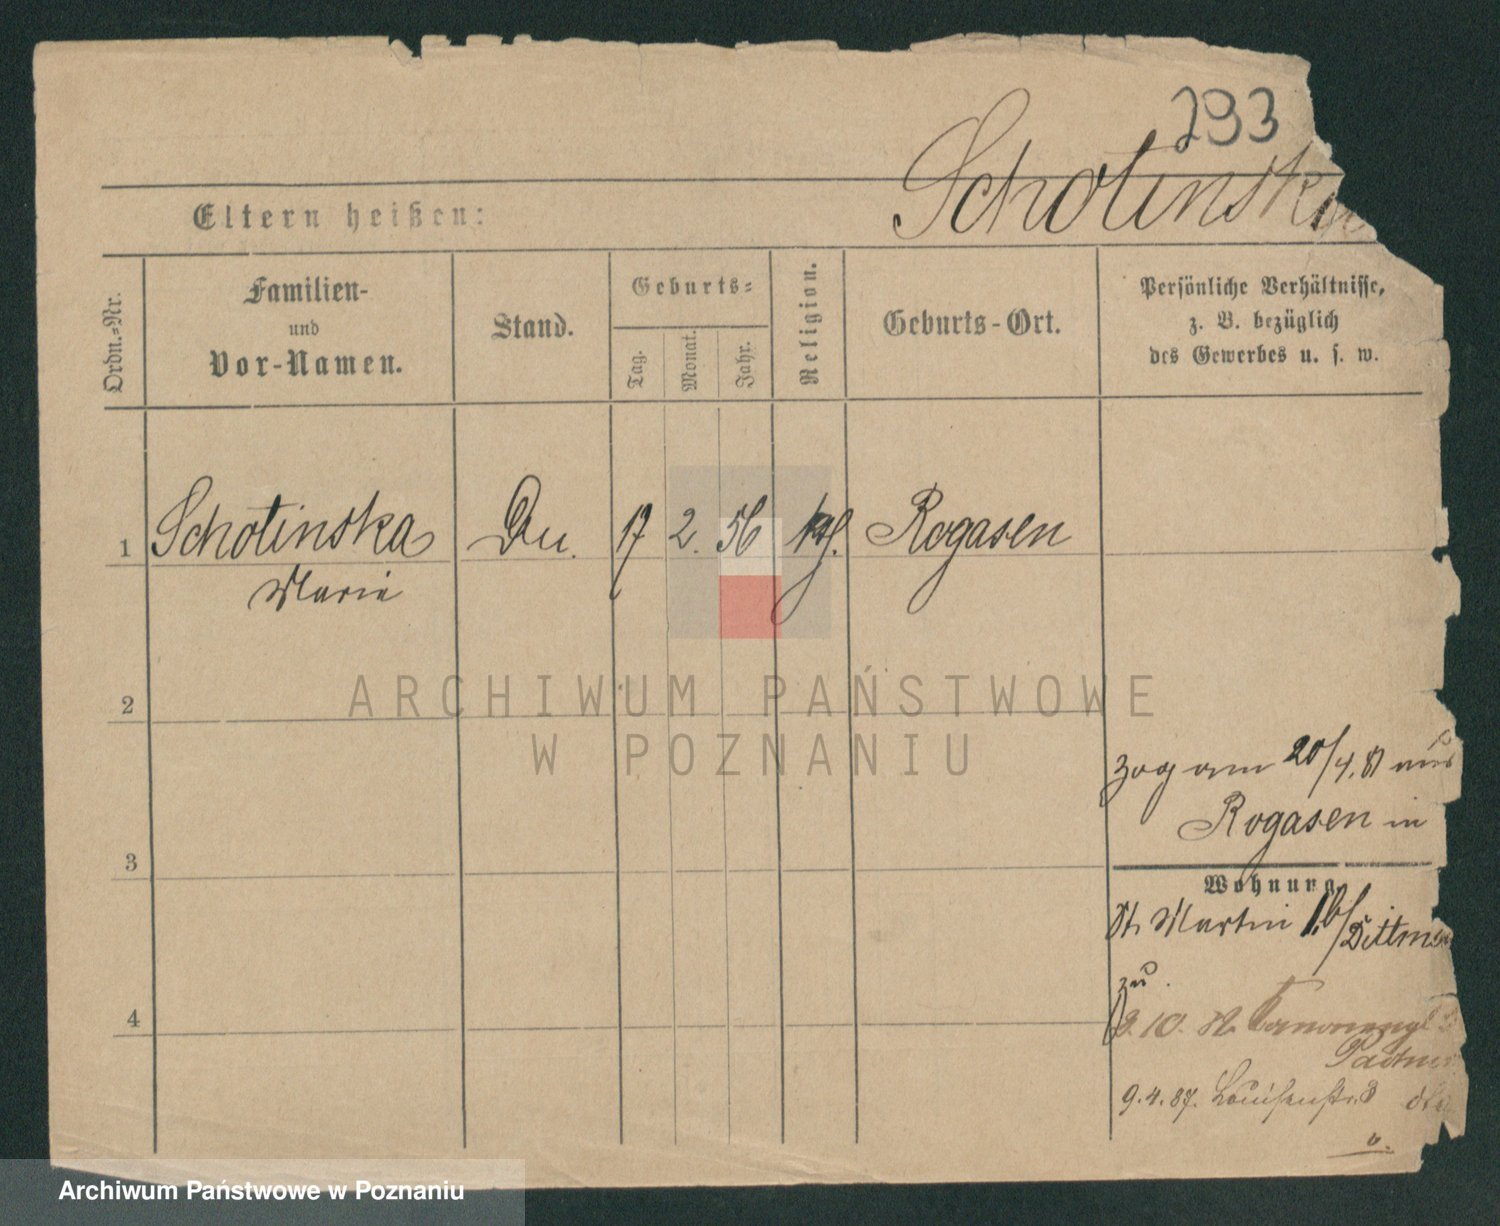 293
Schotinska
Eltern heißen:
Ordn.-Nr.
Familien-
und
Vor-Namen.
Stand.
Geburts-
Tag.
Monat.
Jahr.
Religion.
Geburts-Ort.
Persönliche Verhältnisse,
z. B. bezüglich
des Gewerbes u. s. w.
1 Schotinska 17 2. 56 Rogasen
Marie
ARCHIWUM PAŃSTWOWE
W POZNANIU
2
zog am 20/4. 81 aus
Rogasen in
3
Wohnung
St. Martin
zu
4
9.4.87. Louisenstr. 3
Archiwum Państwowe w Poznaniu